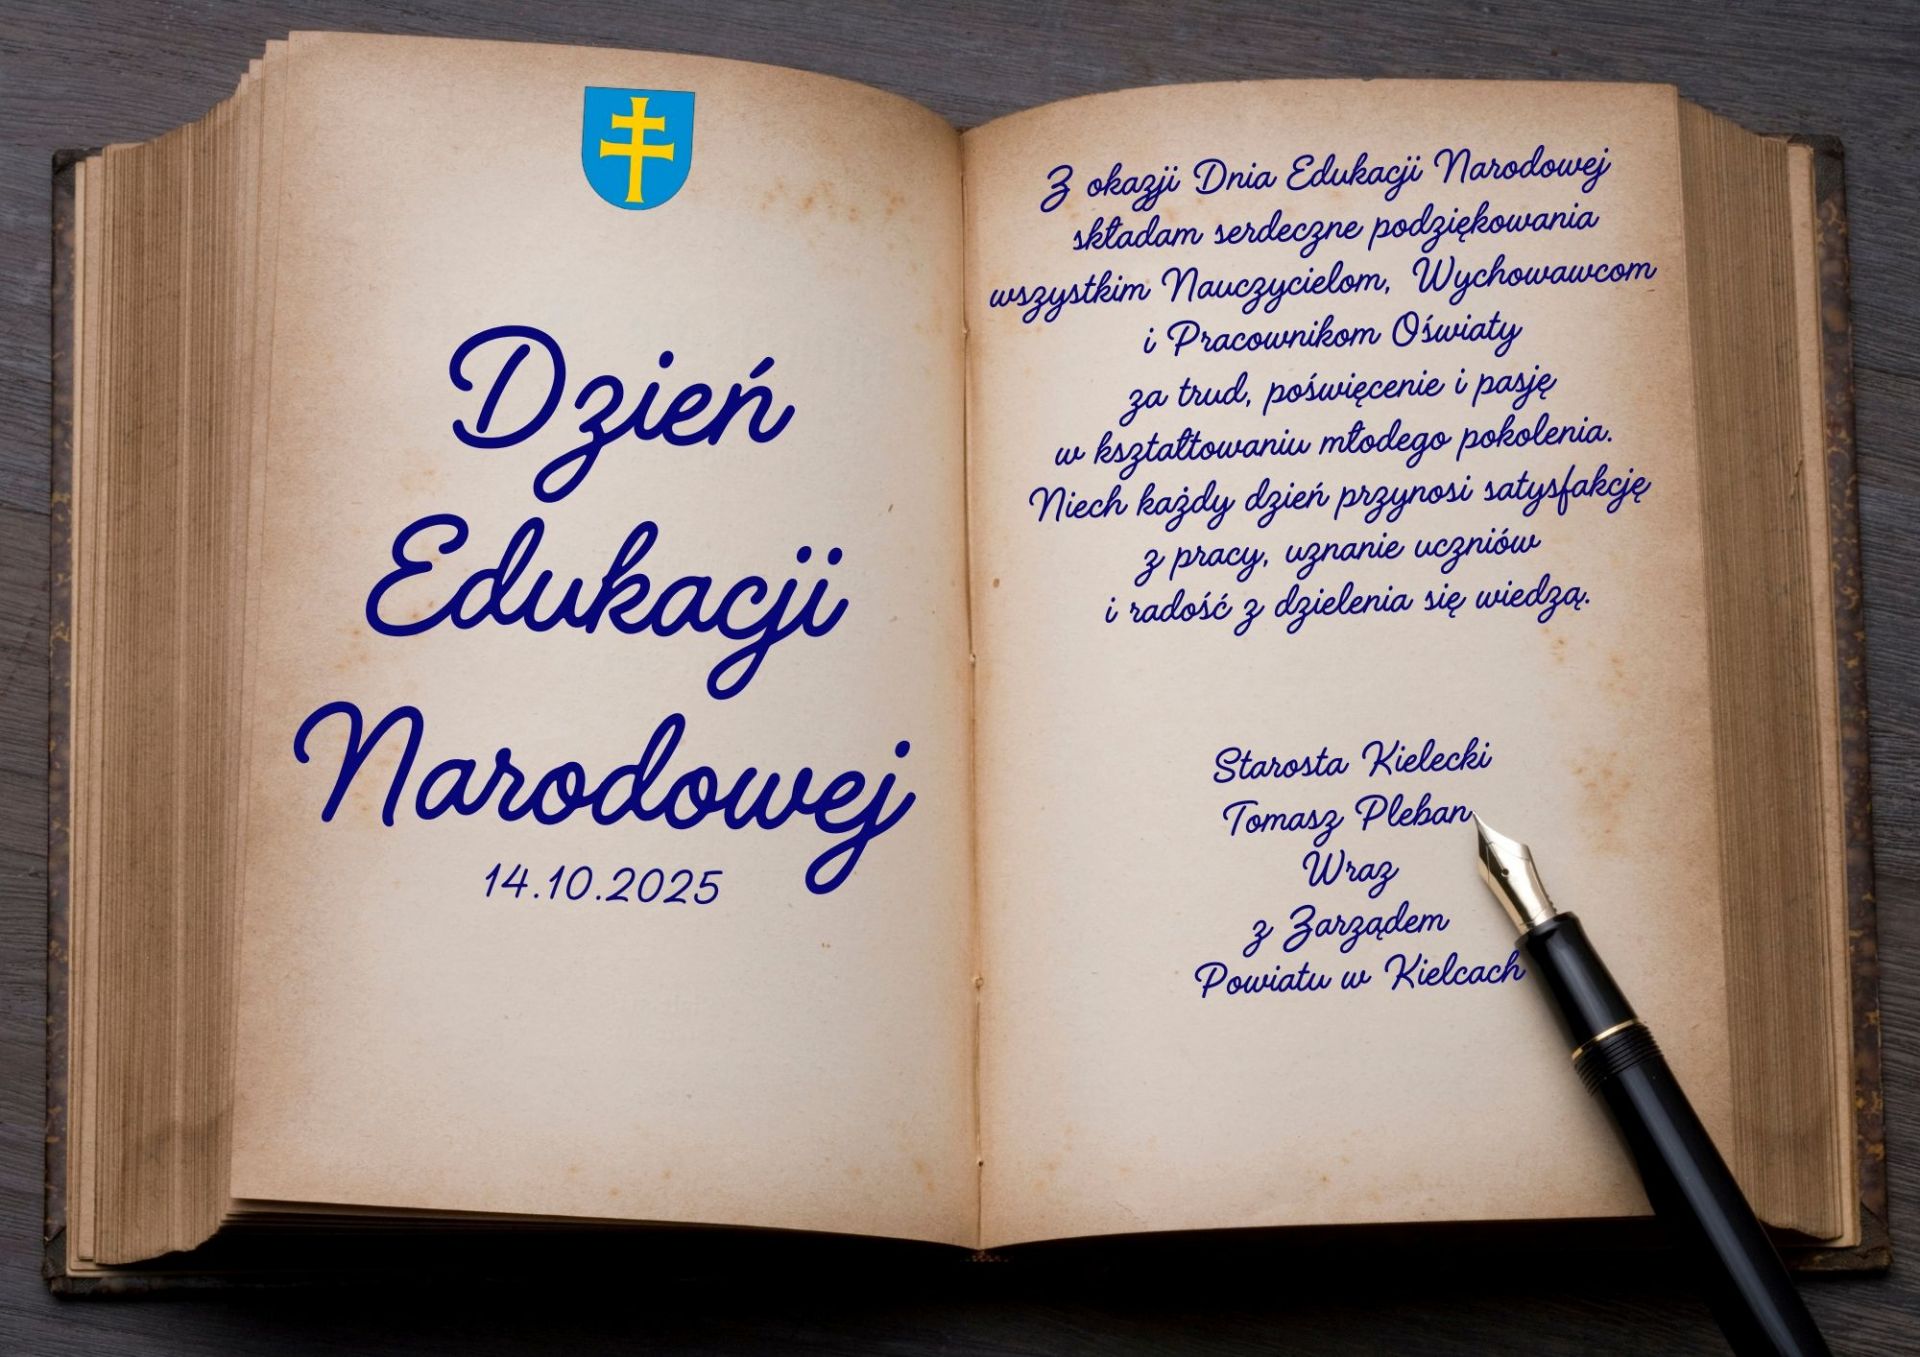 Dzień
Edukacji
Narodowej
14.10.2025
Z okazji Dnia Edukacji Narodowej
składam serdeczne podziękowania
wszystkim Nauczycielom, Wychowawcom
i Pracownikom Oświaty
za trud, poświęcenie i pasję
w kształtowaniu młodego pokolenia.
Niech każdy dzień przynosi satysfakcję
z pracy, uznanie uczniów
i radość z dzielenia się wiedzą.
Starosta Kielecki
Tomasz Pleban
Wraz
z Zarządem
Powiatu w Kielcach